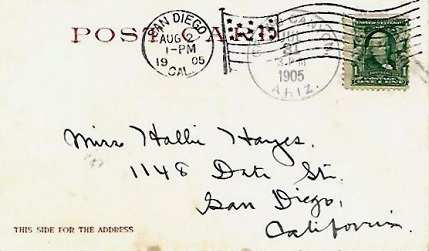 POST CARD
SAN DIEGO
AUG
1-PM
19 05
CAL.
CANYON
JUL
31
3-PM
1905
ARIZ.
Miss Hallie Hayes.
1148 Date St.
San Diego,
California.
THIS SIDE FOR THE ADDRESS